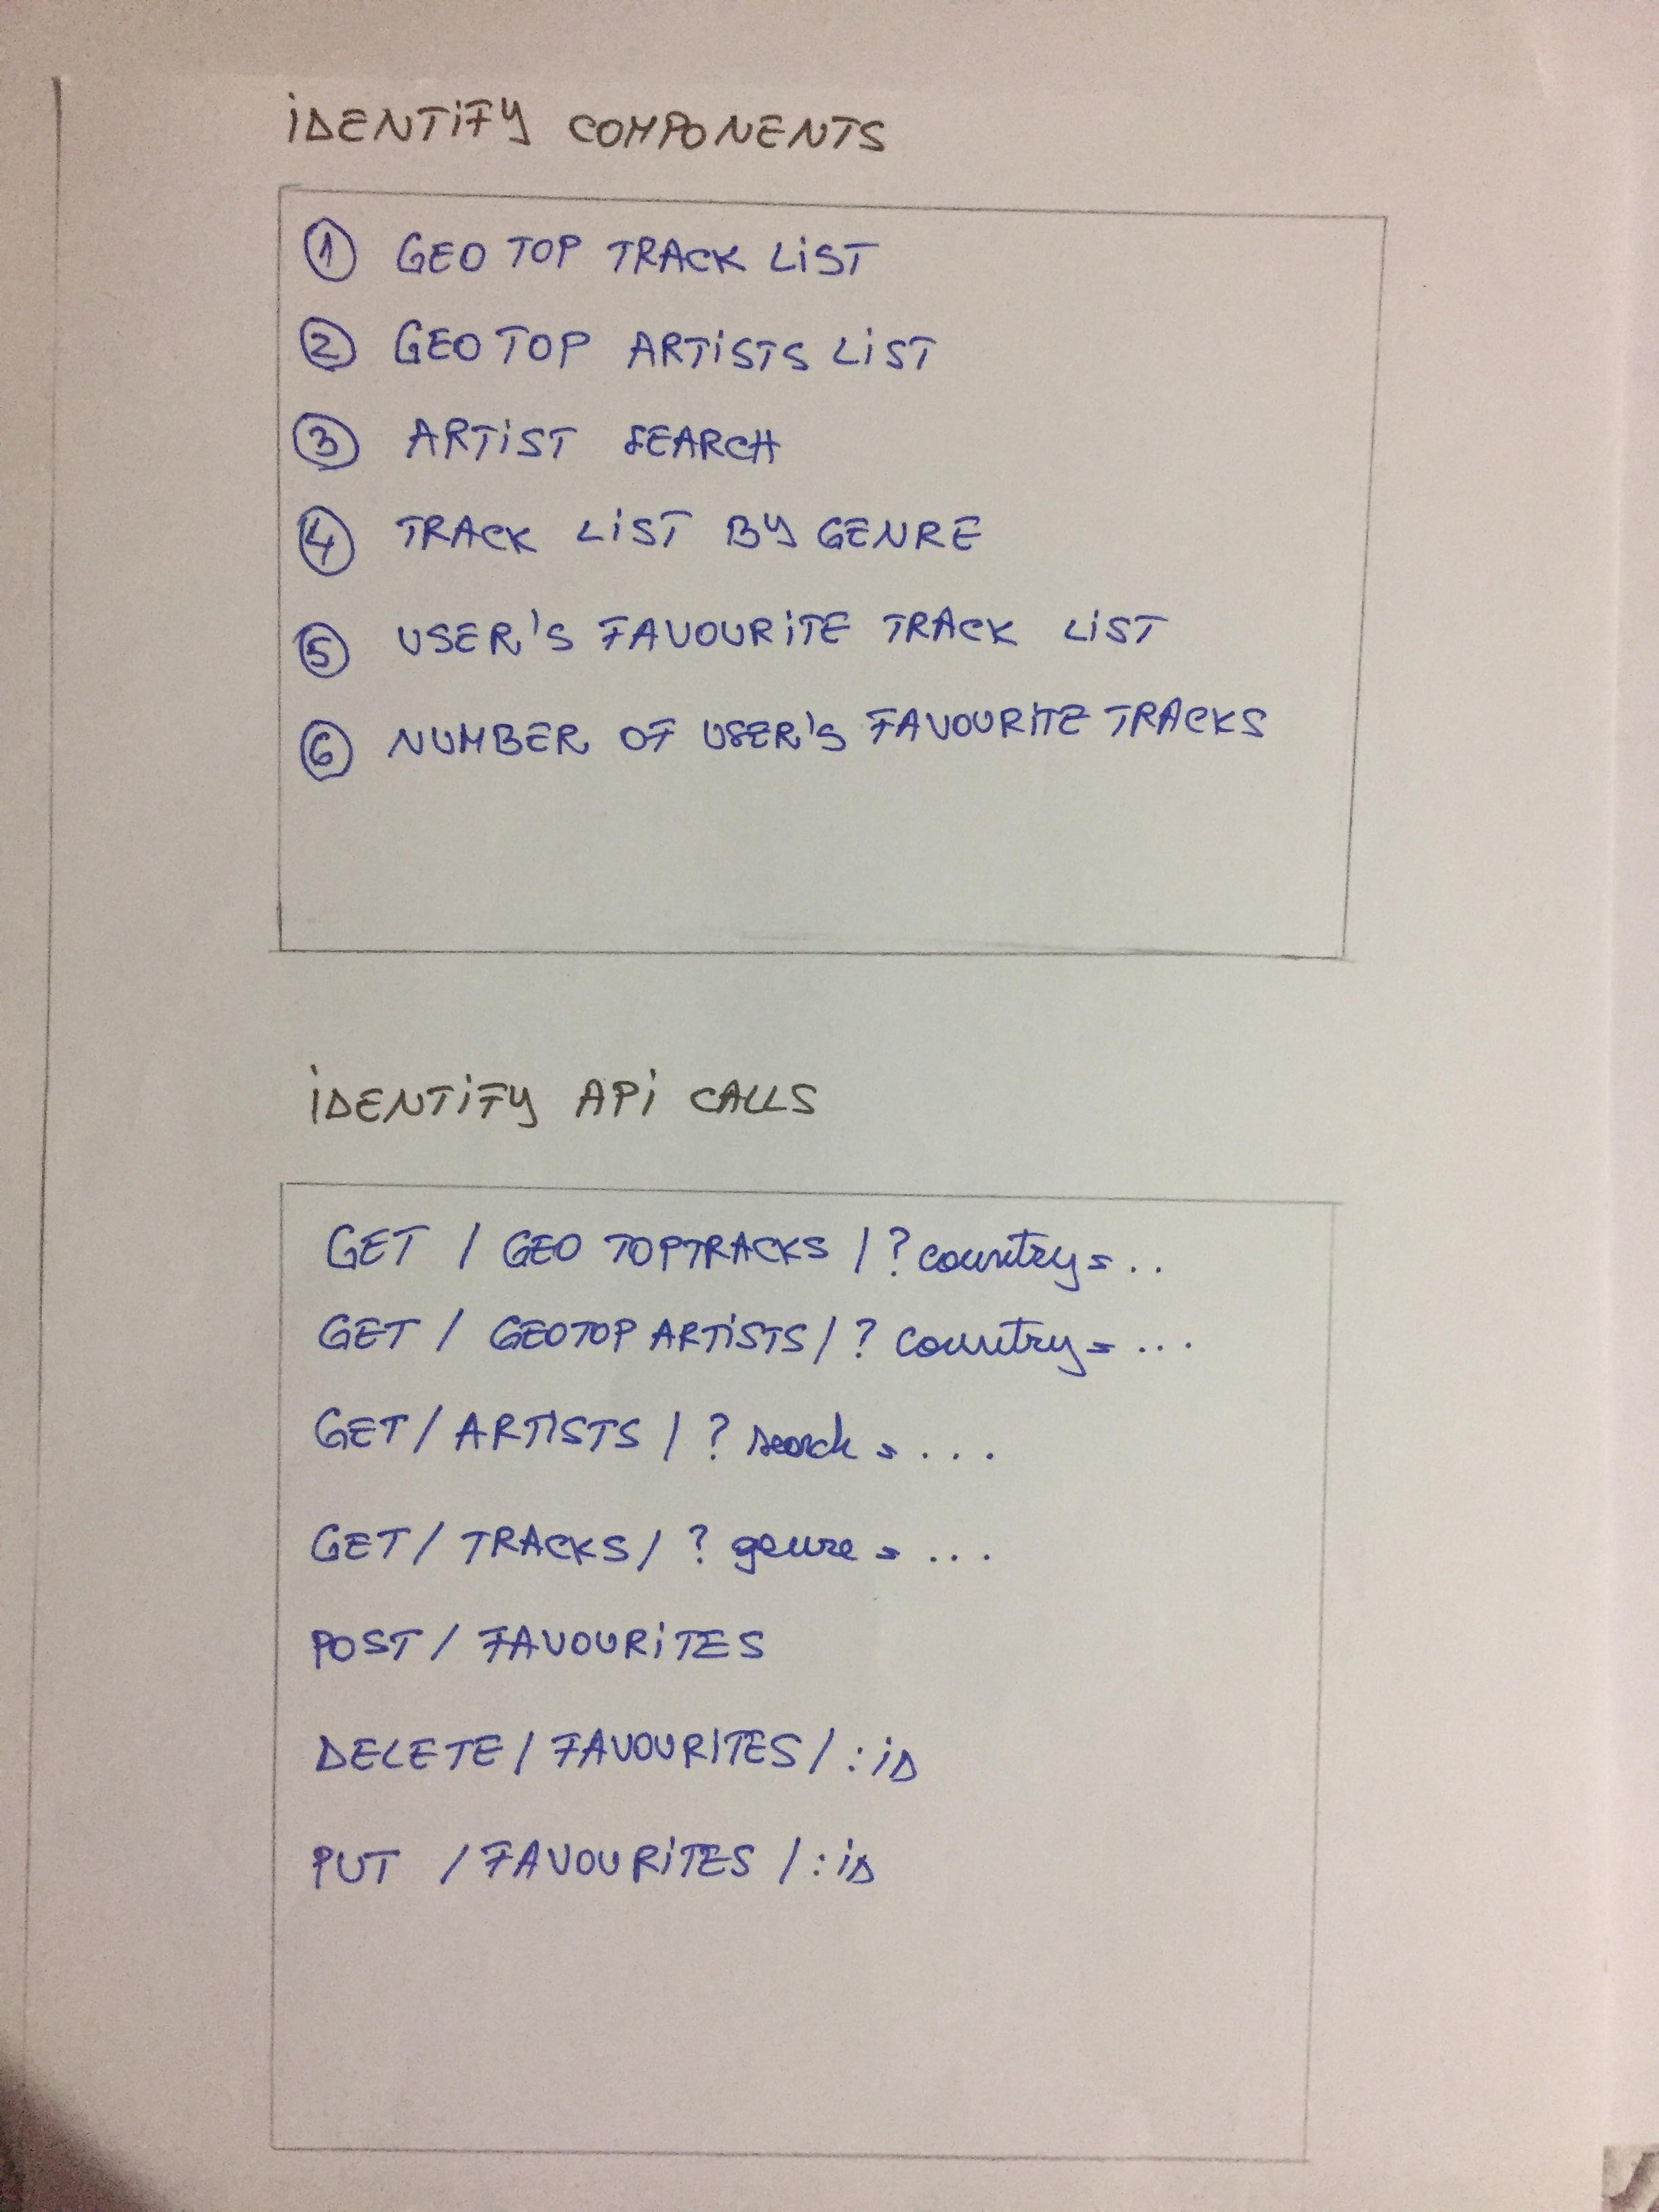 IDENTIFY COMPONENTS
1 GEO TOP TRACK LIST
2 GEO TOP ARTISTS LIST
3 ARTIST SEARCH
4 TRACK LIST BY GENRE
5 USER'S FAVOURITE TRACK LIST
6 NUMBER OF USER'S FAVOURITE TRACKS
IDENTIFY API CALLS
GET / GEO TOPTRACKS / ? country = ..
GET / GEOTOP ARTISTS / ? country = ...
GET / ARTISTS / ? search = ...
GET / TRACKS / ? genre = ...
POST / FAVOURITES
DELETE / FAVOURITES / :ID
PUT / FAVOURITES / :ID